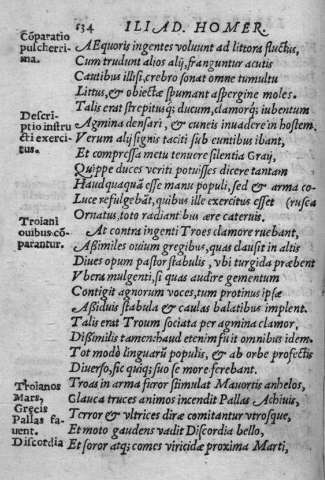 134 ILIAD. HOMER.
Cōparatio
pulcherri-
ma.
AEquoris ingentes voluunt ad littora fluctus,
Cum trudunt alios alij, franguntur acutis
Cautibus illisi, crebro sonat omne tumultu
Littus, & obiectæ spumant aspergine moles.
Talis erat strepitusq; ducum, clamorq; iubentum
Descri-
ptio instru
cti exerci-
tus.
Agmina densari, & cuneis inuadere in hostem.
Verum alij signis taciti sub euntibus ibant,
Et compressa metu tenuere silentia Graij,
Quippe duces veriti potuisses dicere tantam
Haudquaquā esse manu populi, sed & arma co-
Luce refulgebāt, quibus ille exercitus esset (rusca
Ornatus, toto radiantibus ære cateruis.
Troiani
ouibus cō-
parantur.
At contra ingenti Troes clamore ruebant,
Assimiles ouium gregibus, quas clausit in altis
Diues opum pastor stabulis, vbi turgida præbent
Vbera mulgenti, si quas audire gementum
Contigit agnorum voces, tum protinus ipsæ
Assiduis stabula & caulas balatibus implent.
Talis erat Troum sociata per agmina clamor,
Dissimilis tamen: haud etenim fuit omnibus idem.
Tot modò linguarū populis, & ab orbe profectis
Diuerso, sic quisq; suo se more ferebant.
Troianos
Mars,
Græcis
Pallas fa-
uent.
Discordia
Troas in arma furor stimulat Mauortis anhelos,
Glauca truces animos incendit Pallas Achiuis,
Terror & vltrices diræ comitantur vtrosque,
Et moto gaudens vadit Discordia bello,
Et soror atq; comes viricidæ proxima Marti,